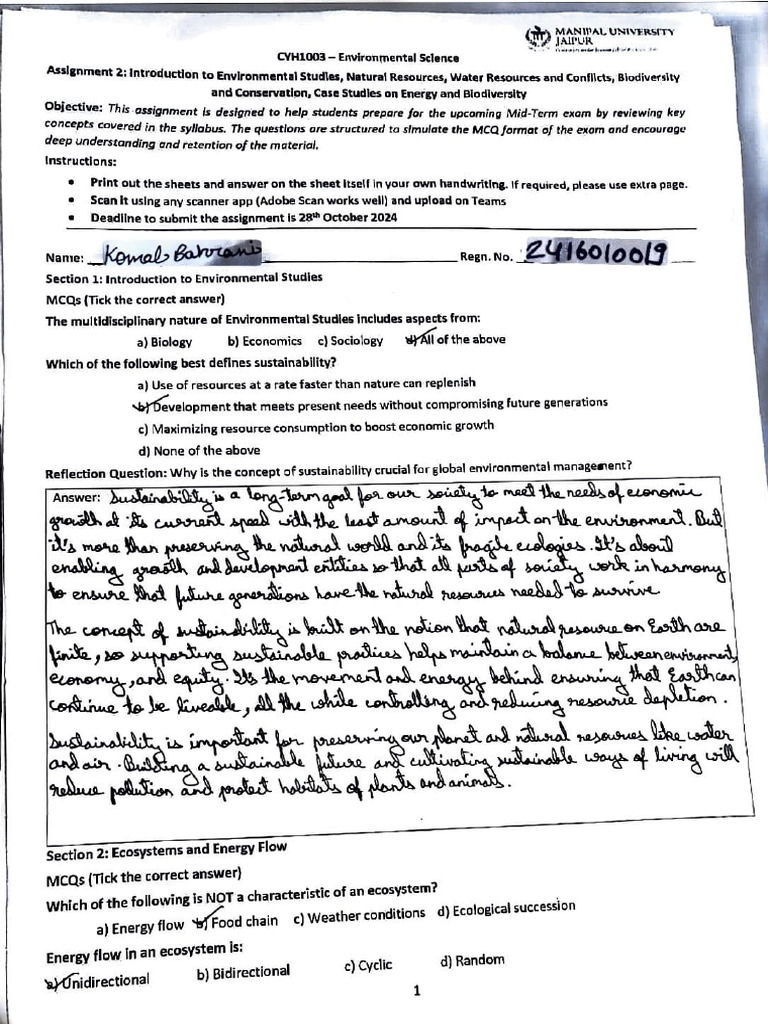 MANIPAL UNIVERSITY
JAIPUR
CYH1003 – Environmental Science
Assignment 2: Introduction to Environmental Studies, Natural Resources, Water Resources and Conflicts, Biodiversity
and Conservation, Case Studies on Energy and Biodiversity
Objective: This assignment is designed to help students prepare for the upcoming Mid-Term exam by reviewing key
concepts covered in the syllabus. The questions are structured to simulate the MCQ format of the exam and encourage
deep understanding and retention of the material.
Instructions:
• Print out the sheets and answer on the sheet itself in your own handwriting. If required, please use extra page.
• Scan it using any scanner app (Adobe Scan works well) and upload on Teams
• Deadline to submit the assignment is 28th October 2024
Name: Komal Regn. No. 2416010019
Section 1: Introduction to Environmental Studies
MCQs (Tick the correct answer)
The multidisciplinary nature of Environmental Studies includes aspects from:
a) Biology b) Economics c) Sociology d) All of the above
Which of the following best defines sustainability?
a) Use of resources at a rate faster than nature can replenish
b) Development that meets present needs without compromising future generations
c) Maximizing resource consumption to boost economic growth
d) None of the above
Reflection Question: Why is the concept of sustainability crucial for global environmental management?
Answer: Sustainability is a long-term goal for our society to meet the needs of economic
growth at its current speed with the least amount of impact on the environment. But
it's more than preserving the natural world and its fragile ecologies. It's about
enabling growth and development entities so that all parts of society work in harmony
to ensure that future generations have the natural resources needed to survive.
The concept of sustainability is built on the notion that natural resource on Earth are
finite, so supporting sustainable practices helps maintain a balance between environment,
economy, and equity. It's the movement and energy behind ensuring that Earth can
continue to be liveable, all the while controlling and reducing resource depletion.
Sustainability is important for preserving our planet and natural resources like water
and air. Building a sustainable future and cultivating sustainable ways of living will
reduce pollution and protect habitats of plants and animals.
Section 2: Ecosystems and Energy Flow
MCQs (Tick the correct answer)
Which of the following is NOT a characteristic of an ecosystem?
a) Energy flow b) Food chain c) Weather conditions d) Ecological succession
Energy flow in an ecosystem is:
a) Unidirectional b) Bidirectional c) Cyclic d) Random
1